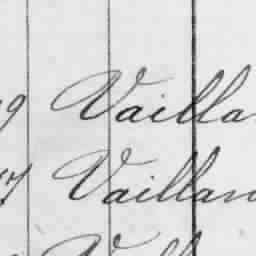 9 Vailla
7 Vaillan